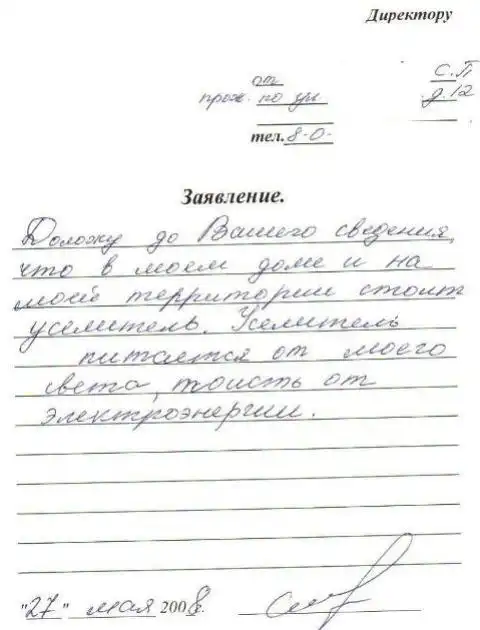 Директору
от С.П
прож. по ул д.12
тел. 8-0-
Заявление.
Доложу до Вашего сведения,
что в моем доме и на
моей территории стоит
уселитель. Уселитель
питается от моего
света, тоисть от
электроэнергии.
"27" мая 2008г.